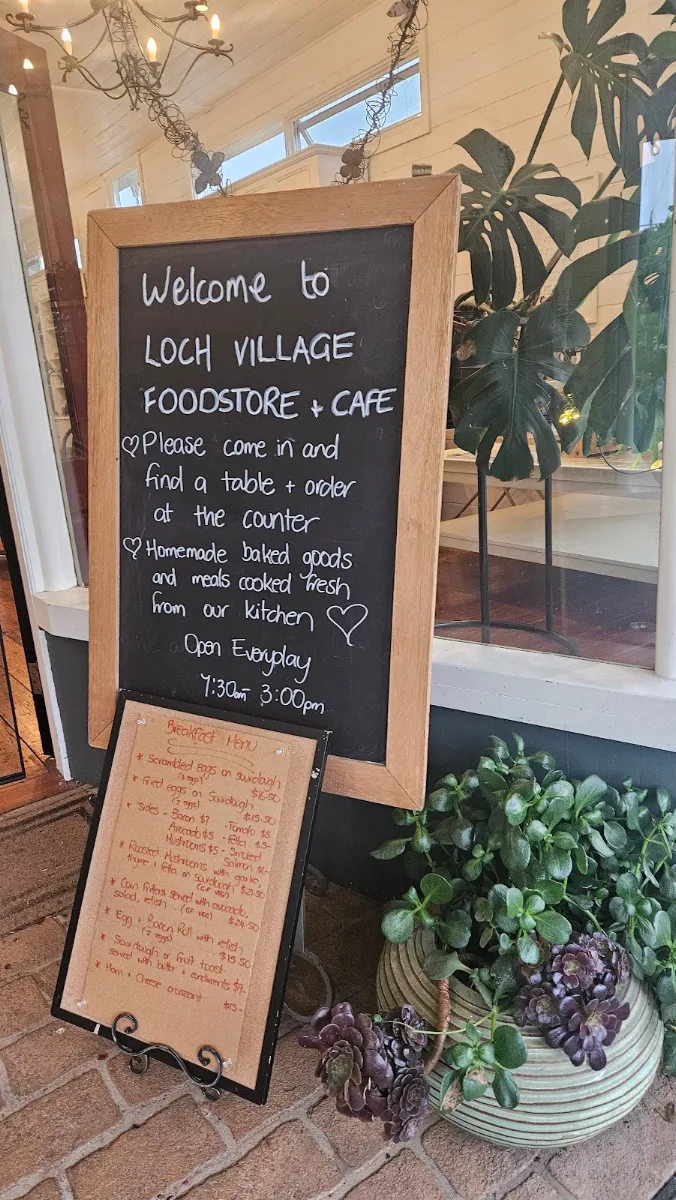 Welcome to
LOCH VILLAGE
FOODSTORE + CAFE
♡ Please come in and
find a table + order
at the counter
♡ Homemade baked goods
and meals cooked fresh
from our kitchen ♡
Open Everyday
7:30am - 3:00pm
Breakfast Menu
* Scrambled eggs on sourdough
(3 eggs) $16.50
* Fried eggs on Sourdough
(2 eggs) $15.50
* Sides - Bacon $7 - Tomato $5
Avocado $5 - Fetta $3-
Mushrooms $5 - Smoked
Salmon
* Roasted Mushrooms with garlic,
thyme + fetta on sourdough $21.50
* Corn fritters served with avocado,
salad, relish $24.50
* Egg + Bacon Roll with relish
(2 eggs) $15.50
* Sourdough or fruit toast
served with butter + condiments $9-
* Ham + Cheese croissant